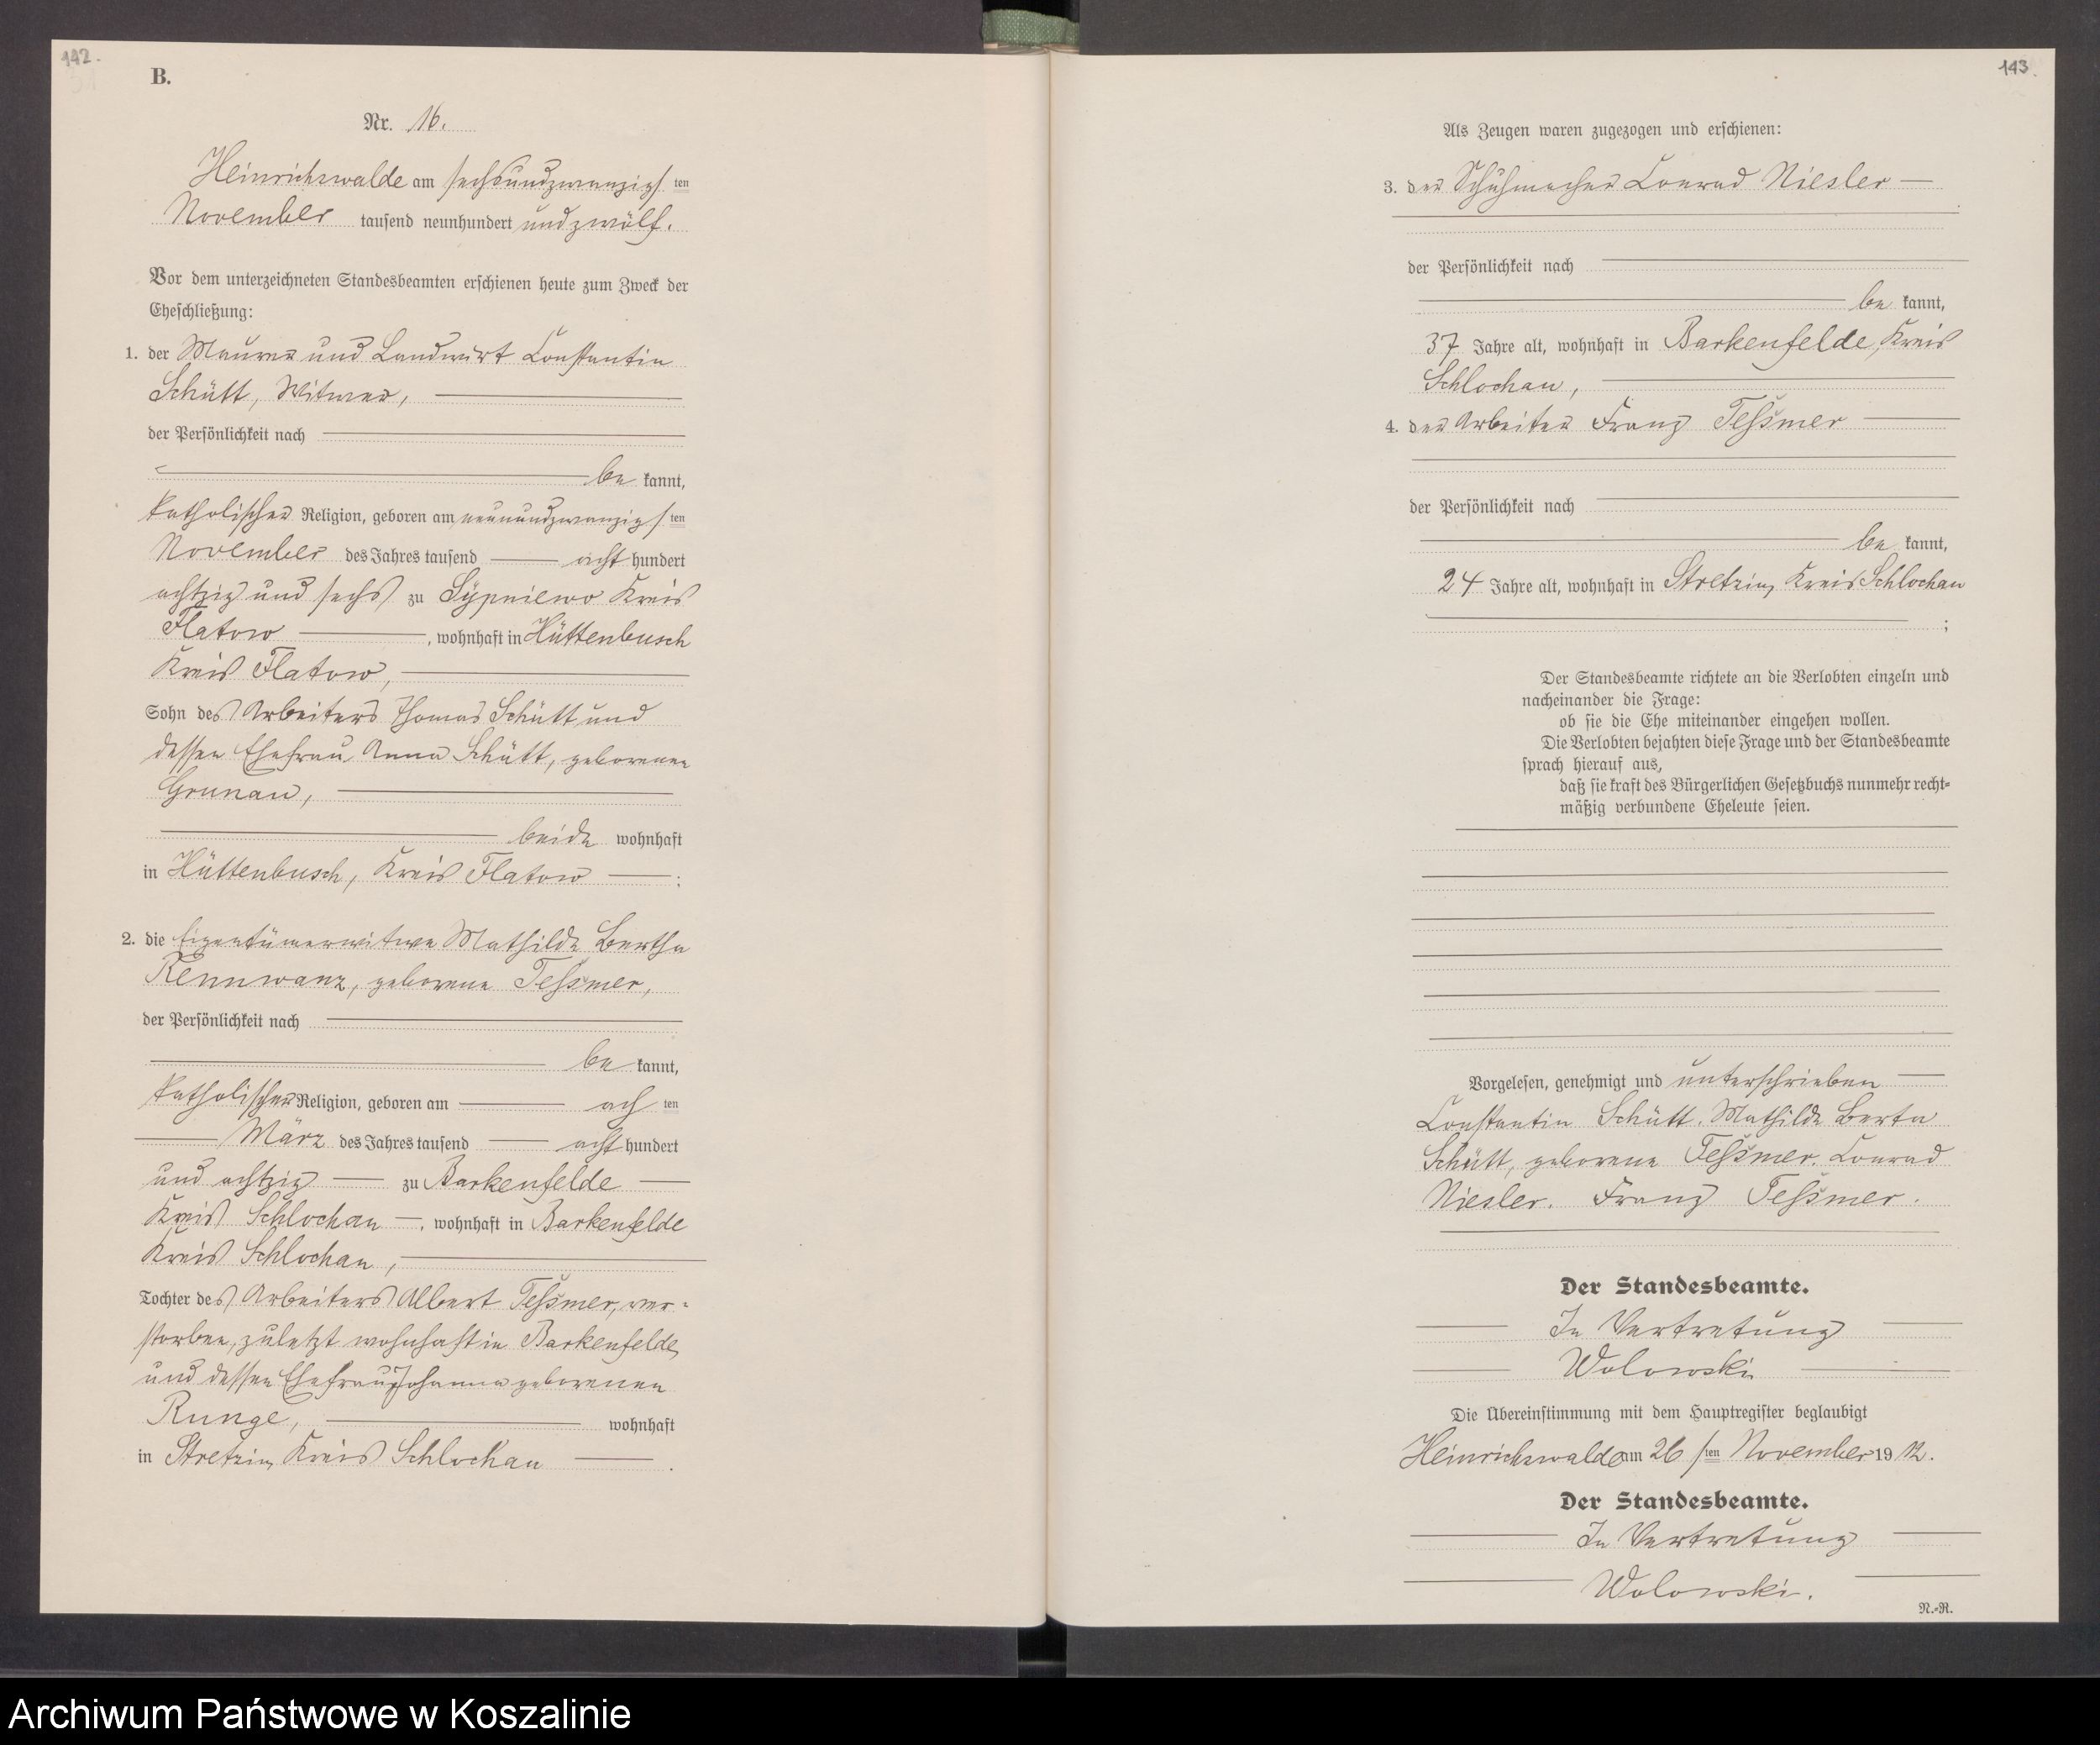 142.
B.
Nr. 16.
Heinrichswalde am sechsundzwanzigsten
November tausend neunhundert undzwölf.
Vor dem unterzeichneten Standesbeamten erschienen heute zum Zweck der
Eheschließung:
1. der Maurer und Landwirt Constantin
Schütt, Witwer,
der Persönlichkeit nach
be kannt,
katholischer Religion, geboren am neunundzwanzigsten
November des Jahres tausend acht hundert
achtzig und sechs zu Sypniewo Kreis
Flatow, wohnhaft in Hüttenbusch
Kreis Flatow,
Sohn des Arbeiters Thomas Schütt und
dessen Ehefrau Anna Schütt, geborenen
Grunau,
beide wohnhaft
in Hüttenbusch, Kreis Flatow ;
2. die Eigentümerwitwe Mathilde Bertha
Rennwanz, geborene Teßmer,
der Persönlichkeit nach
be kannt,
katholischer Religion, geboren am achten
März des Jahres tausend acht hundert
und achtzig zu Barkenfelde
Kreis Schlochau, wohnhaft in Barkenfelde
Kreis Schlochau,
Tochter des Arbeiters Albert Teßmer, ver-
storben, zuletzt wohnhaft in Barkenfelde,
und dessen Ehefrau Johanna geborenen
Runge, wohnhaft
in Stretzin, Kreis Schlochau .
143.
Als Zeugen waren zugezogen und erschienen:
3. der Schuhmacher Conrad Niesler
der Persönlichkeit nach
be kannt,
37 Jahre alt, wohnhaft in Barkenfelde, Kreis
Schlochau,
4. der Arbeiter Franz Teßmer
der Persönlichkeit nach
be kannt,
24 Jahre alt, wohnhaft in Stretzin, Kreis Schlochau
;
Der Standesbeamte richtete an die Verlobten einzeln und
nacheinander die Frage:
ob sie die Ehe miteinander eingehen wollen.
Die Verlobten bejahten diese Frage und der Standesbeamte
sprach hierauf aus,
daß sie kraft des Bürgerlichen Gesetzbuchs nunmehr recht-
mäßig verbundene Eheleute seien.
Vorgelesen, genehmigt und unterschrieben
Constantin Schütt. Mathilde Berta
Schütt, geborene Teßmer. Conrad
Niesler. Franz Teßmer.
Der Standesbeamte.
In Vertretung
Wolowski
Die Übereinstimmung mit dem Hauptregister beglaubigt
Heinrichswalde am 26 sten November 19 12.
Der Standesbeamte.
In Vertretung
Wolowski.
N.-R.
Archiwum Państwowe w Koszalinie